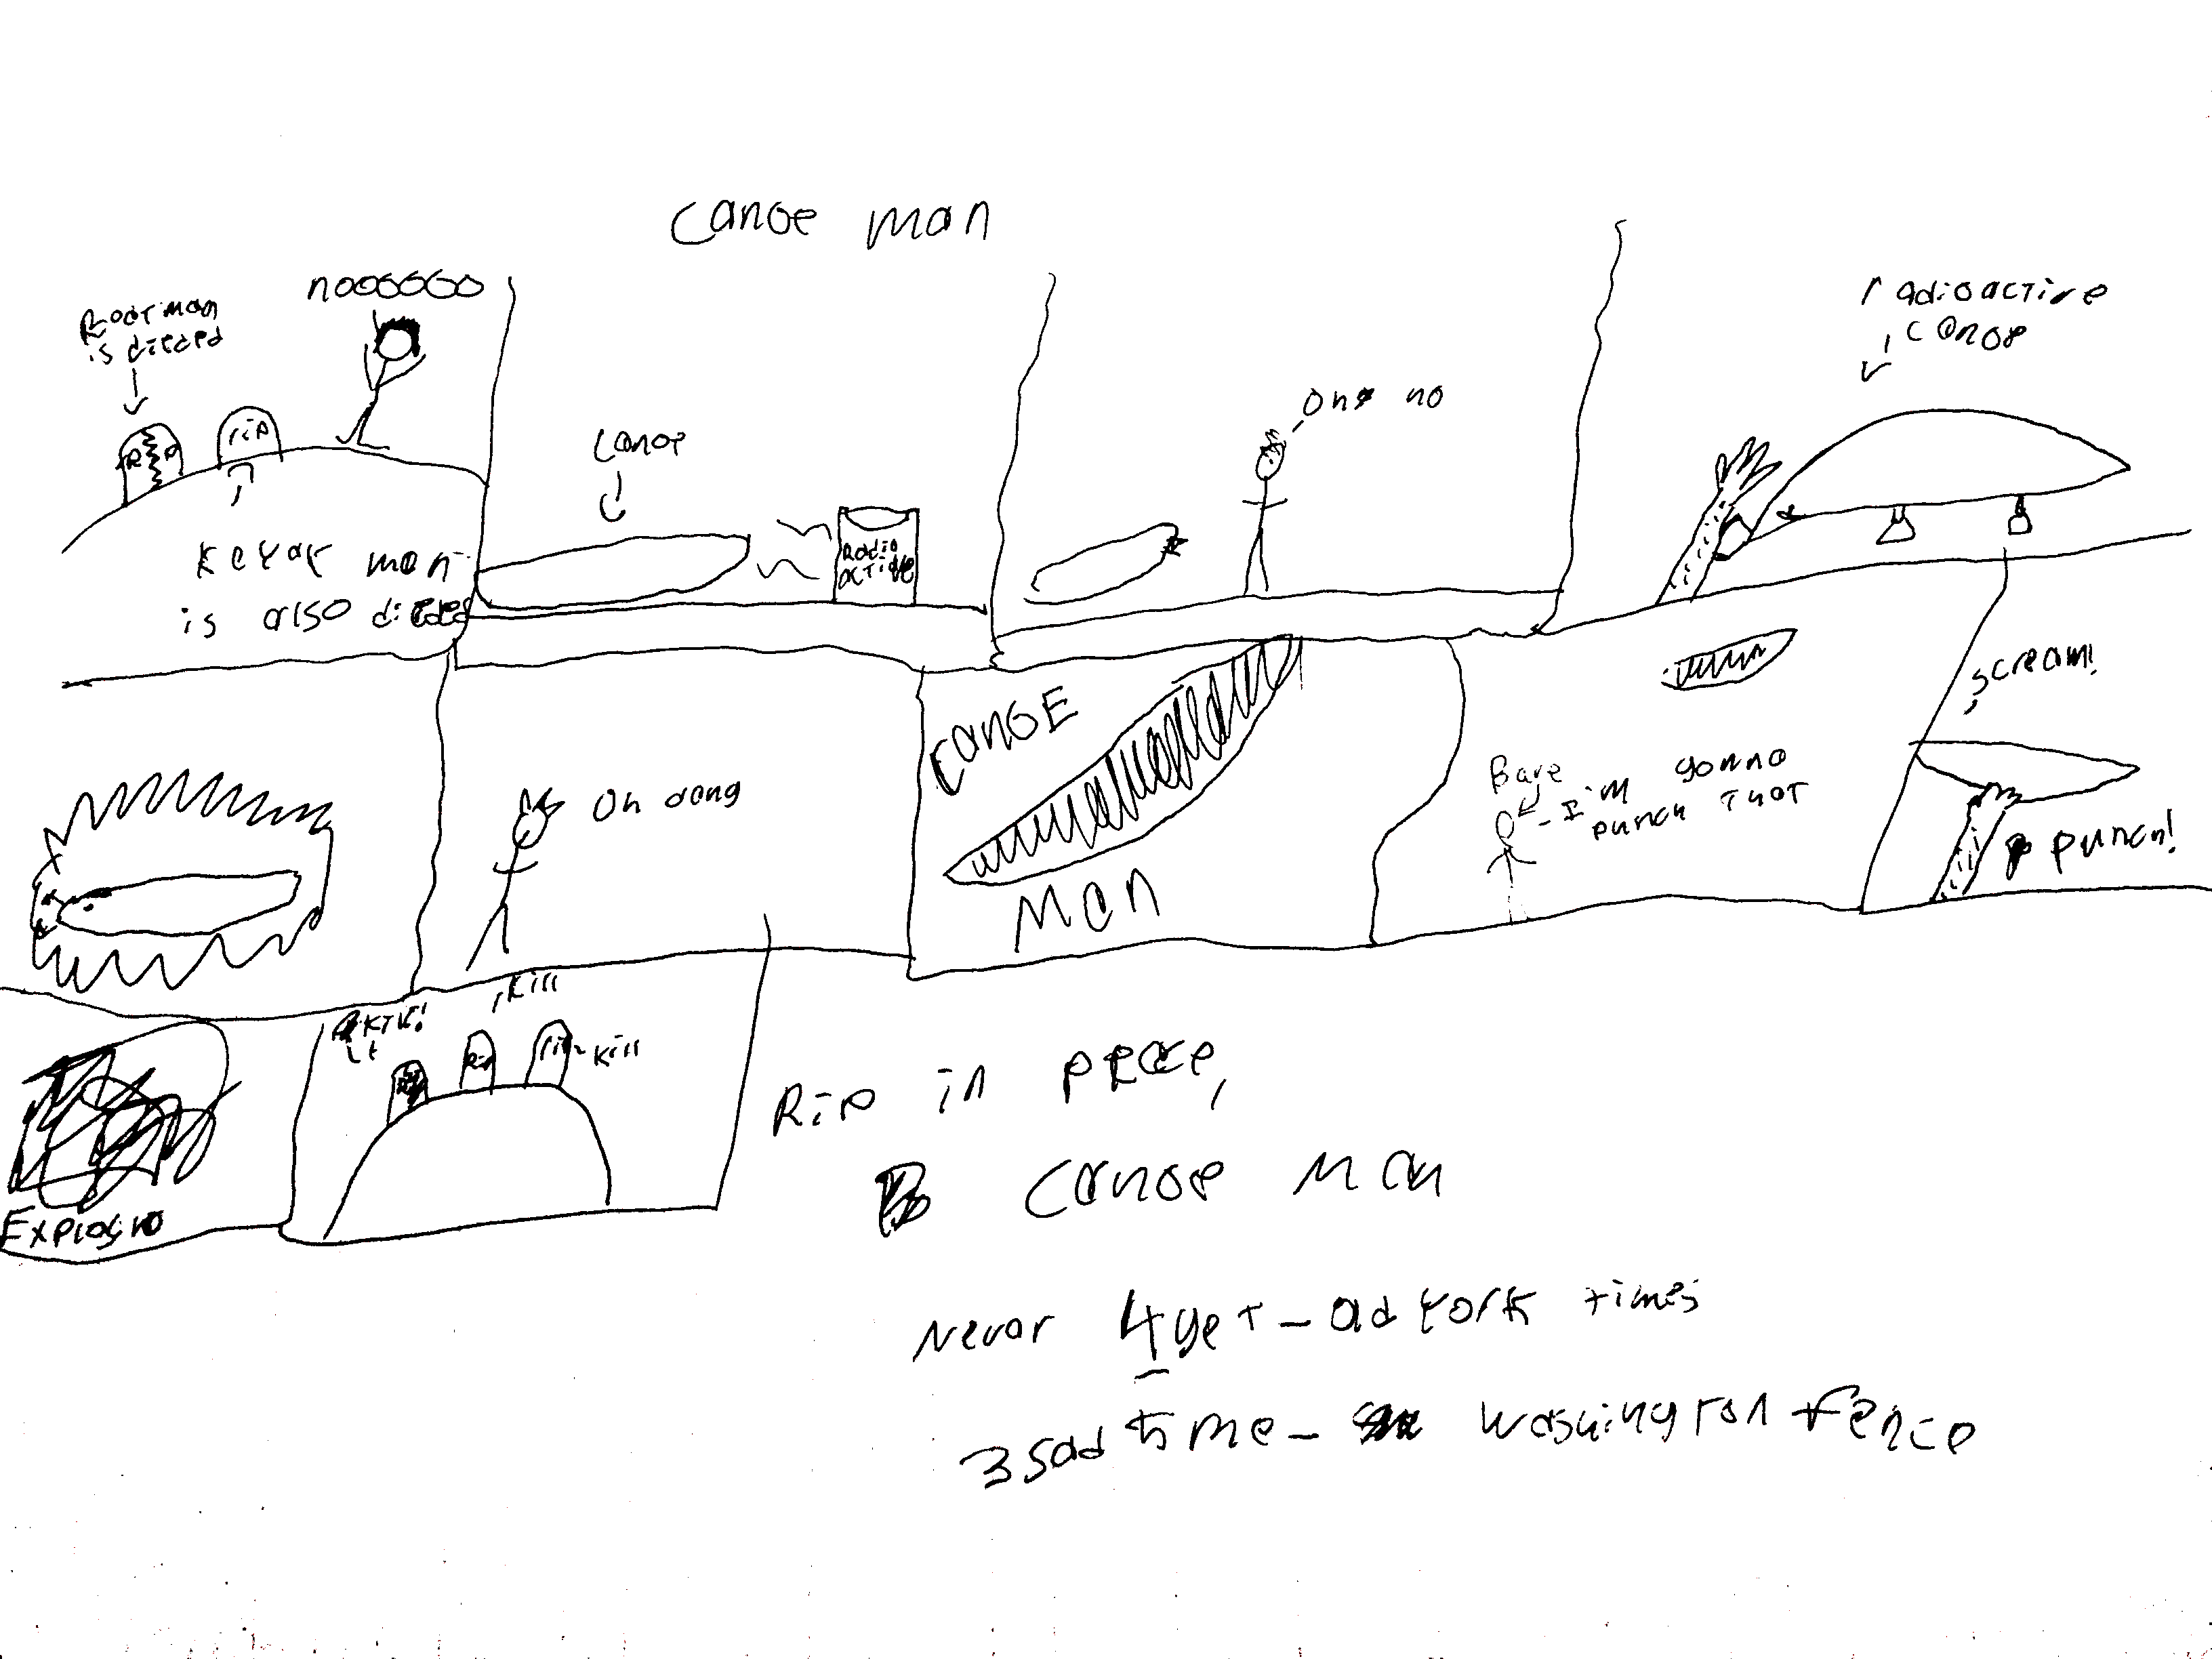 canoe man
nooooooo
is dieded
rip
rip
keyak man
is also dieded
canoe
Radio
active
oh no
radioactive
canoe
oh dang
CANOE
MAN
Bave
- I'm gonna
punch that
scream!
punch!
Explosion
kill
rip
rip
kill
Rip in peace,
canoe man
Never 4get - ad york times
3 sad 5 me - washington fence